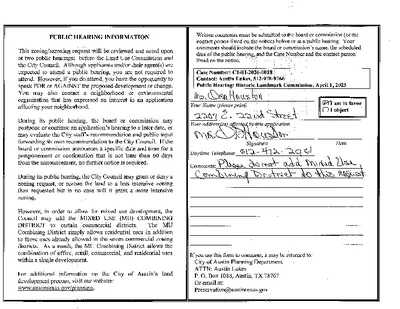 PUBLIC HEARING INFORMATION
This zoning/rezoning request will be reviewed and acted upon
at two public hearings: before the Land Use Commission and
the City Council. Although applicants and/or their agent(s) are
expected to attend a public hearing, you are not required to
attend. However, if you do attend, you have the opportunity to
speak FOR or AGAINST the proposed development or change.
You may also contact a neighborhood or environmental
organization that has expressed an interest in an application
affecting your neighborhood.
During its public hearing, the board or commission may
postpone or continue an application's hearing to a later date, or
may evaluate the City staff's recommendation and public input
forwarding its own recommendation to the City Council. If the
board or commission announces a specific date and time for a
postponement or continuation that is not later than 60 days
from the announcement, no further notice is required.
During its public hearing, the City Council may grant or deny a
zoning request, or rezone the land to a less intensive zoning
than requested but in no case will it grant a more intensive
zoning.
However, in order to allow for mixed use development, the
Council may add the MIXED USE (MU) COMBINING
DISTRICT to certain commercial districts. The MU
Combining District simply allows residential uses in addition
to those uses already allowed in the seven commercial zoning
districts. As a result, the MU Combining District allows the
combination of office, retail, commercial, and residential uses
within a single development.
For additional information on the City of Austin's land
development process, visit our website:
www.austintexas.gov/planning.
Written comments must be submitted to the board or commission (or the
contact person listed on the notice) before or at a public hearing. Your
comments should include the board or commission's name, the scheduled
date of the public hearing, and the Case Number and the contact person
listed on the notice.
Case Number:
Contact: Austin Lukes,
Public Hearing: Historic Landmark Commission, April 1, 2025
Ms. Houston
Your Name (please print)
I am in favor
I object
2207 E. 22nd Street
Your address(es) affected by this application
Ms. Houston
Signature Date
Daytime Telephone: 512
Comments: Please do not add Mixed Use
Combining District to this request
If you use this form to comment, it may be returned to:
City of Austin Planning Department
ATTN: Austin Lukes
P. O. Box 1088, Austin, TX 78767
Or email at:
Preservation@austintexas.gov